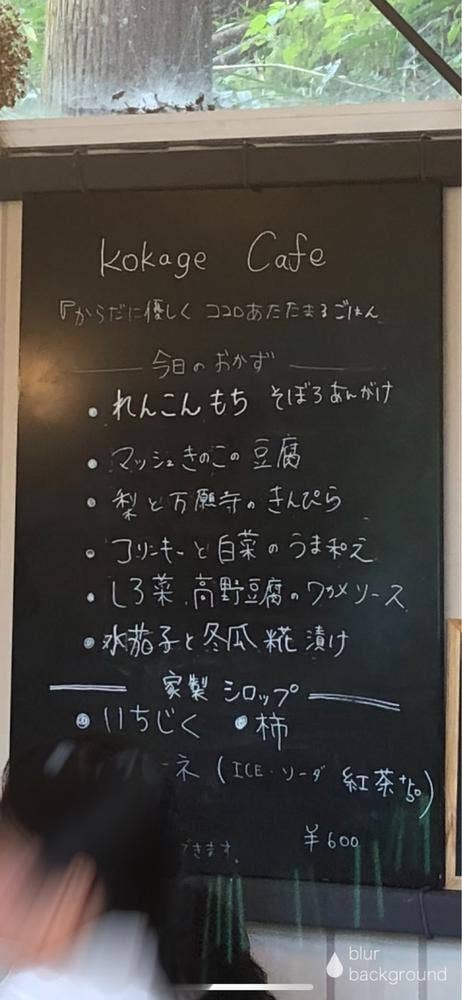 kokage Cafe
『からだに優しく ココロあたたまるごはん
今日のおかず
• れんこんもち そぼろあんかけ
• マッシュきのこの豆腐
• 梨と万願寺のきんぴら
• コリンキーと白菜のうま和え
• しろ菜、高野豆腐のワカメソース
• 水茄子と冬瓜 糀漬け
家製 シロップ
• いちじく • 柿
ネ (ICE・ソーダ 紅茶+50)
できます。 ¥600
blur
background